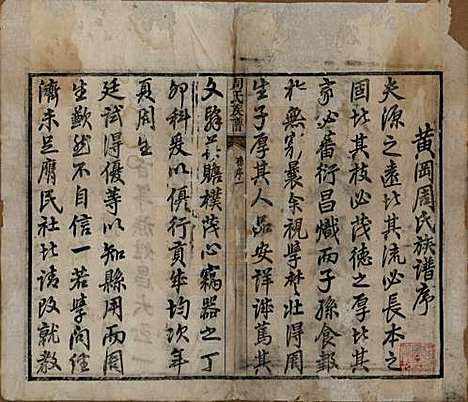 黃岡周氏族譜序
夫源之遠者其流必長本之
固者其枝必茂德之厚者其
家必蕃衍昌熾而子孫食報
於無窮曩余視學楚北得周
生子厚其人品安詳淳篤其
文縣
贍樸茂心竊器之丁
卯科爰以俱行貢成均次年
夏周生
廷試得優等以知縣用而周
生歉然不自信一若學問經
濟未足膺民社者請改就教
周氏族譜
序一